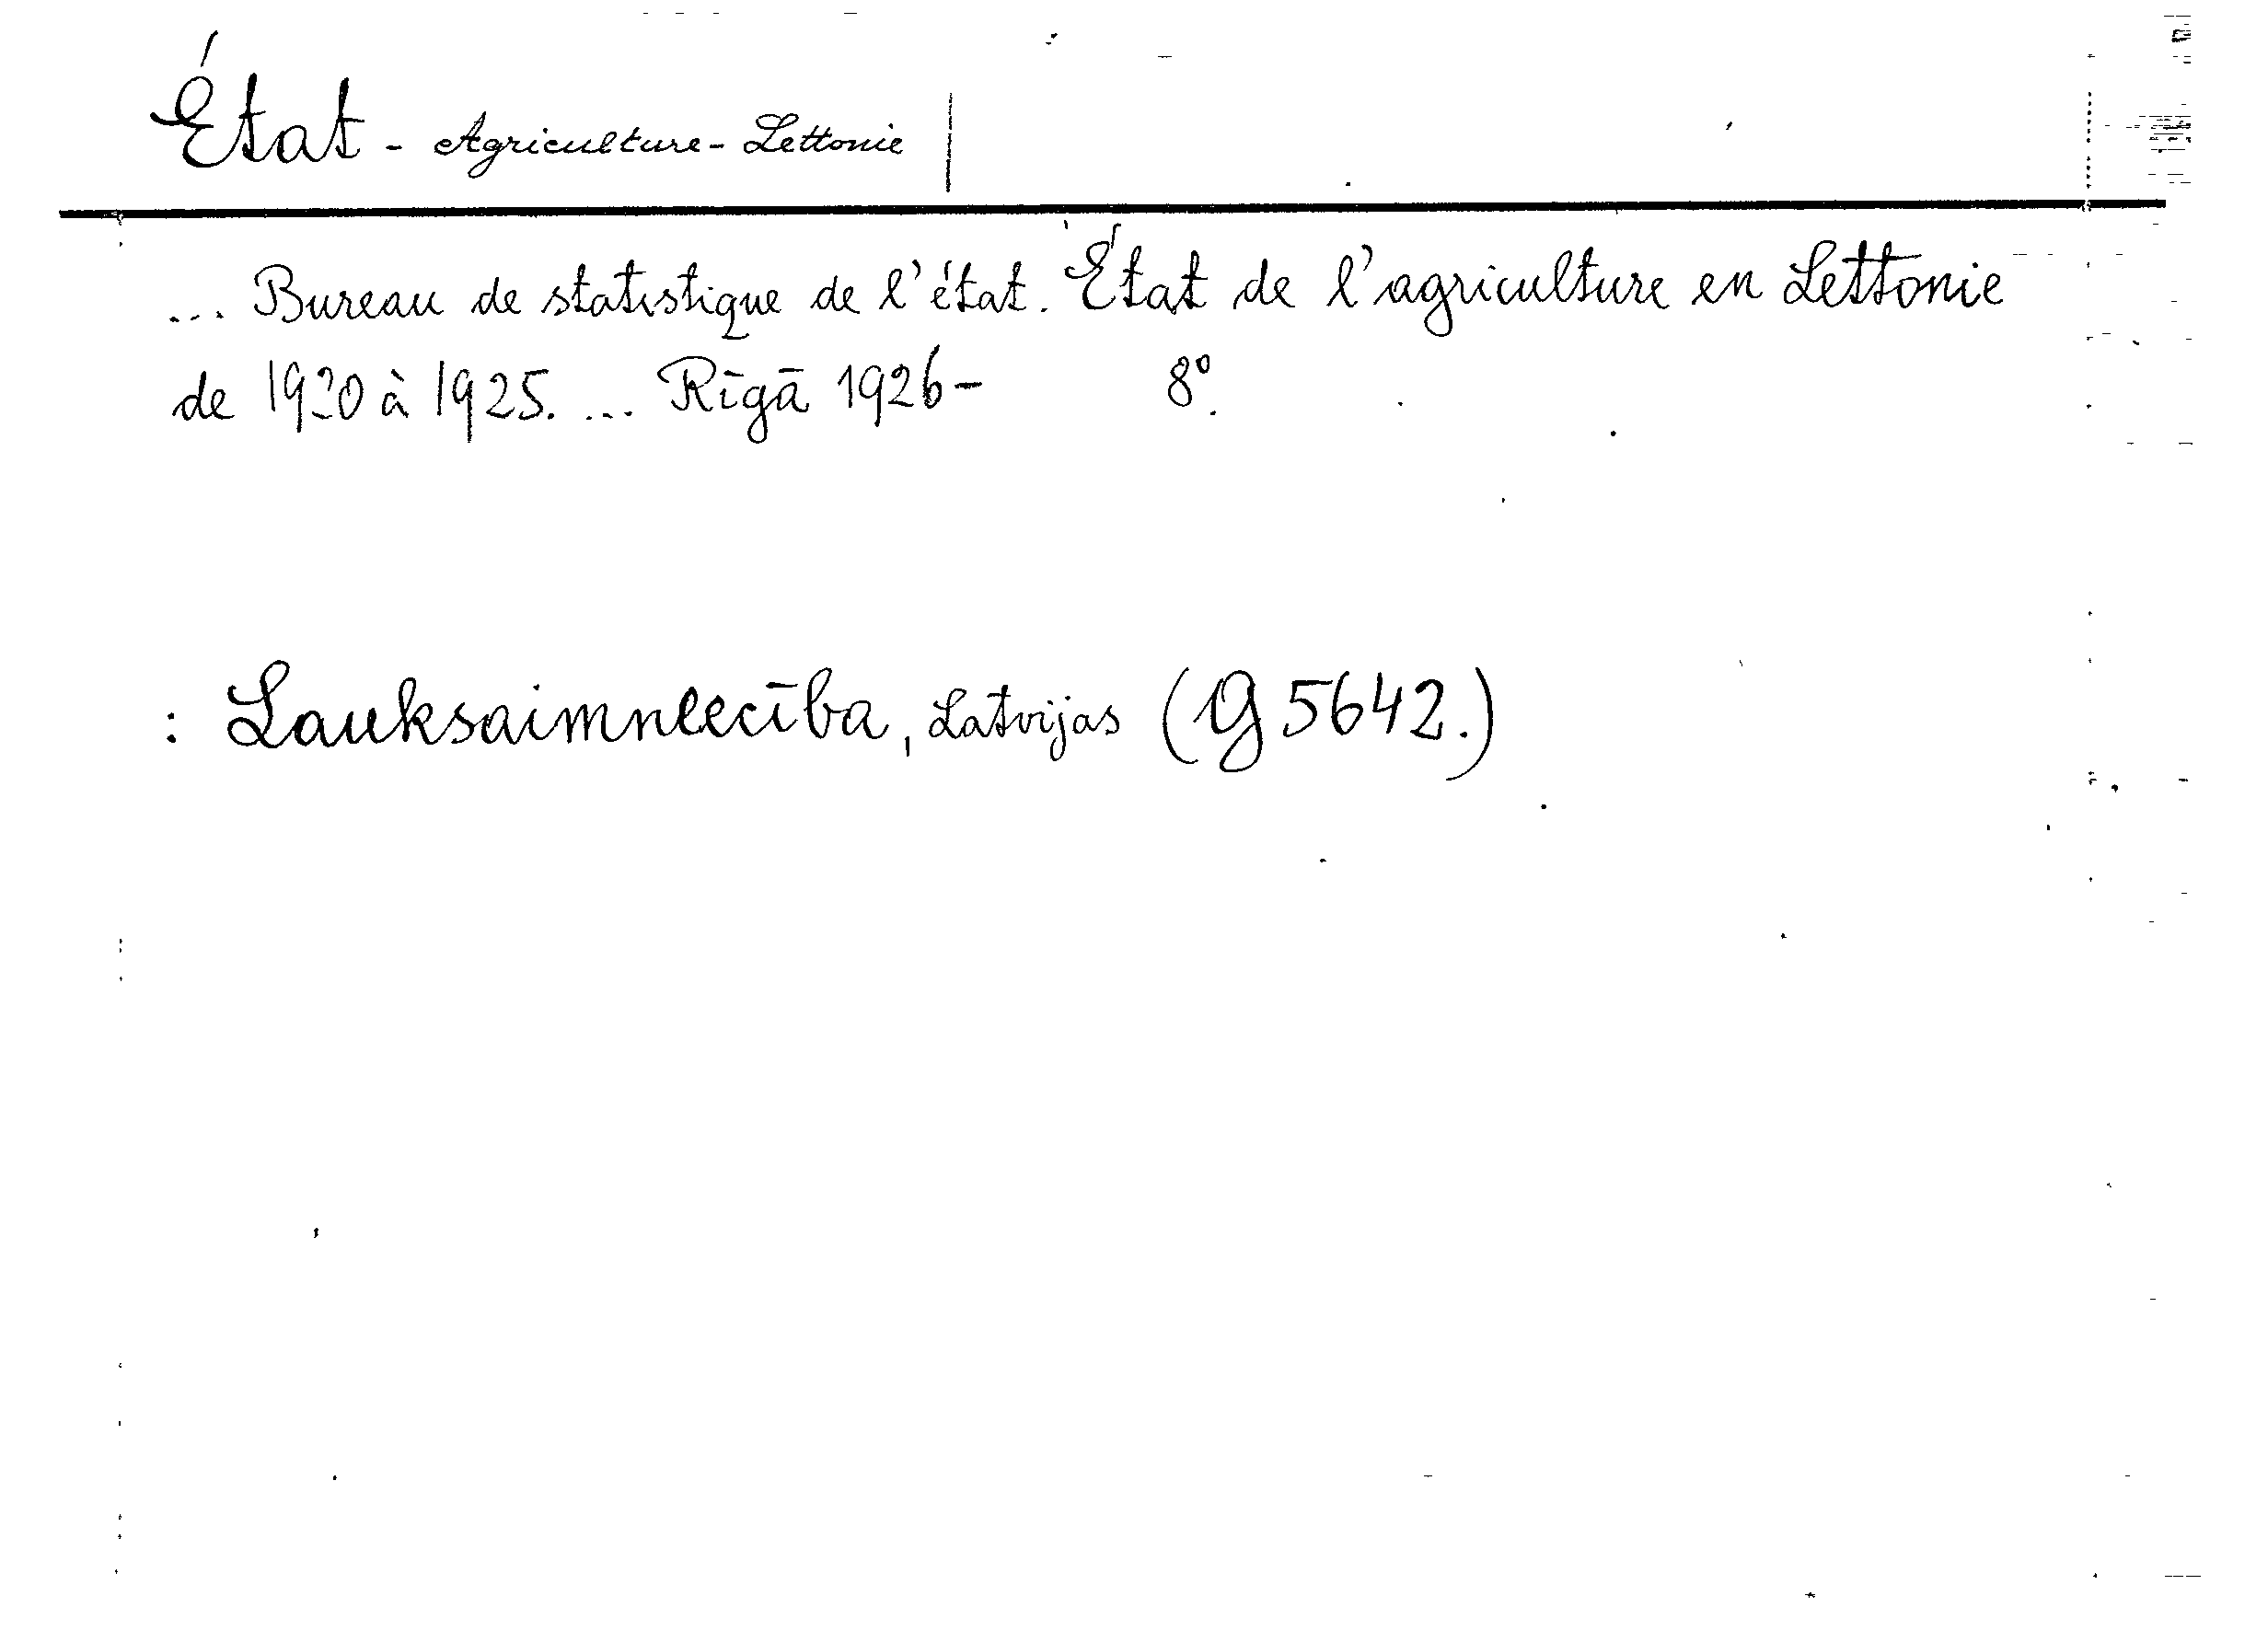 État - Agriculture - Lettonie
... Bureau de statistique de l'état. État de l'agriculture en Lettonie
de 1920 à 1925. ... Rīgā 1926- 8°.
: Lauksaimneecība, Latvijas (G 5642.)